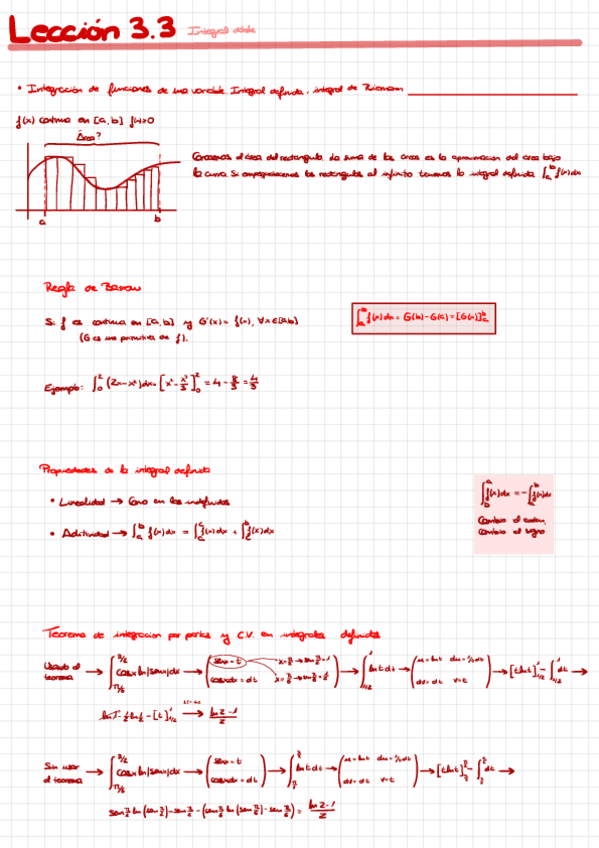 Lección 3.3 Integral doble
• Integración de funciones de una variable. Integral definida, integral de Riemann
f(x) continua en [a,b] f(x)≥0
Área?
Conocemos el área del rectángulo. La suma de las areas es la aproximación del área bajo
la curva. Si empequeñecemos los rectángulos al infinito tenemos la integral definida ∫_a^b f(x)dx
a b
Regla de Barrow
Si f es continua en [a,b] y G'(x) = f(x), ∀x∈[a,b]
(G es una primitiva de f).
∫_a^b f(x)dx = G(b) - G(a) = [G(x)]_a^b
Ejemplo: ∫_0^2 (2x-x²)dx = [x² - x³/3]_0^2 = 4 - 8/3 = 4/3
Propiedades de la integral definida
• Linealidad → Como en las indefinidas
• Aditividad → ∫_a^b f(x)dx = ∫_a^c f(x)dx + ∫_c^b f(x)dx
Cambio el orden,
cambio el signo
Teorema de integracion por partes y C.V. en integrales definidas
Usando el
teorema
→ ∫_{π/6}^{π/2} cosx ln|senx|dx → (senx = t cosxdx = dt) → ∫_{1/2}^1 ln t dt → (u = ln t du = 1/t dt dv = dt v = t) → [t ln t]_{1/2}^1 - ∫_{1/2}^1 dt →
ln 1 - ½ ln ½ - [t]_{1/2}^1 → (ln 2 - 1)/2
Sin usar
el teorema
→ ∫_{π/6}^{π/2} cosx ln|senx|dx → (senx = t cosxdx = dt) → ∫ ln t dt → (u = ln t du = 1/t dt dv = dt v = t) → [t ln t] - ∫ dt →
sen π/2 ln (sen π/2) - sen π/2 - (sen π/6 ln (sen π/6) - sen π/6) = (ln 2 - 1)/2